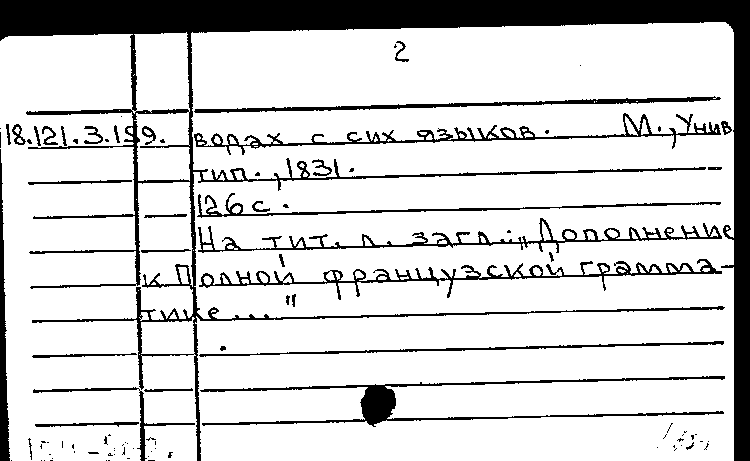 2
18.121.3.159. водах с сих языков. М., Унив
тип., 1831.
126 с.
На тит. л. загл.: „Дополнение
к Полной французской грамма-
тике..."